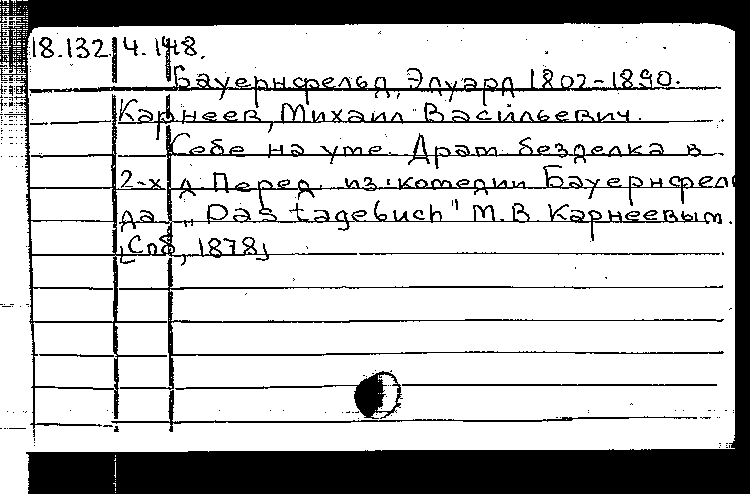 18.132 4.148.
Бауернсфельд, Эдуард 1802-1890.
Карнеев, Михаил Васильевич.
Себе на уме. Драт. безделка в
2-х д. Перед. из комедии Бауернсфель
да „Das tagebuch" М.В. Карнеевым.
[Спб, 1878]